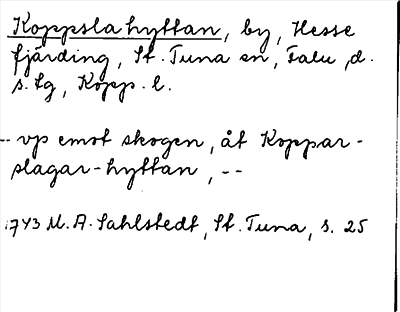 Koppslahyttan, by, Hesse
fjärding, St. Tuna sn, Falu d.
s. lg, Kopp. l.
-- vp emot skogen, åt Koppar-
slagar-hyttan, --
1743 M. A. Sahlstedt, St. Tuna, s. 25